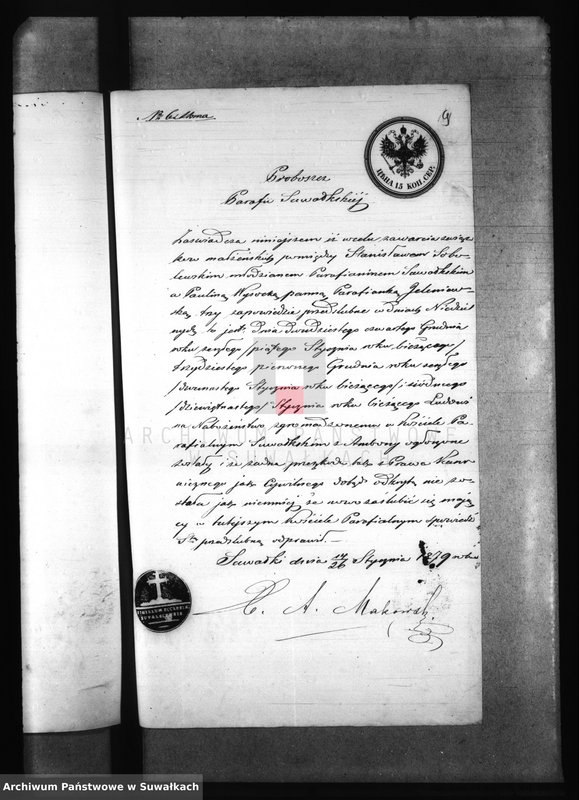 9
ЦѢНА 15 КОП. СЕР.
Proboszcz
Parafii Suwałkskiéj
Zaświadcza niniejszem iż w celu zawarcia związku
małżeńskiego pomiędzy Stanisławem Sobo-
lewskim młodzianem Parafianinem Suwałkskim
a Pauliną Wysocką panną Parafianką Jeleniew-
ską trzy zapowiedzie przedślubne w dniach Niedziel
nych to jest: dnia dwudziestego czwartego Grudnia
roku zeszłego /piątego Stycznia roku bieżącego/
trzydziestego pierwszego Grudnia roku zeszłego
/dwunastego Stycznia roku bieżącego/ i siódmego
/dziewiętnastego/ Stycznia roku bieżącego Ludowi
na Nabożeństwo zgromadzonemu w Kościele Pa-
rafialnym Suwałkskim z Ambony ogłoszone
zostały i że żadna przeszkoda tak z Prawa Kano-
nicznego jako Cywilnego dotąd odkrytą nie zo-
stała jak niemniéj że nowo zaślubić się mają
cy w tutejszym Kościele Parafialnym spowiedź
Stą przedślubną odprawili.—
Suwałki dnia 14/26 Stycznia 1879 roku
X. A. Makowski
SIGILLUM ECCLESIAE
SUVALSCENSIS
ARCHIWUM PAŃSTWOWE
W SUWAŁKACH
Archiwum Państwowe w Suwałkach